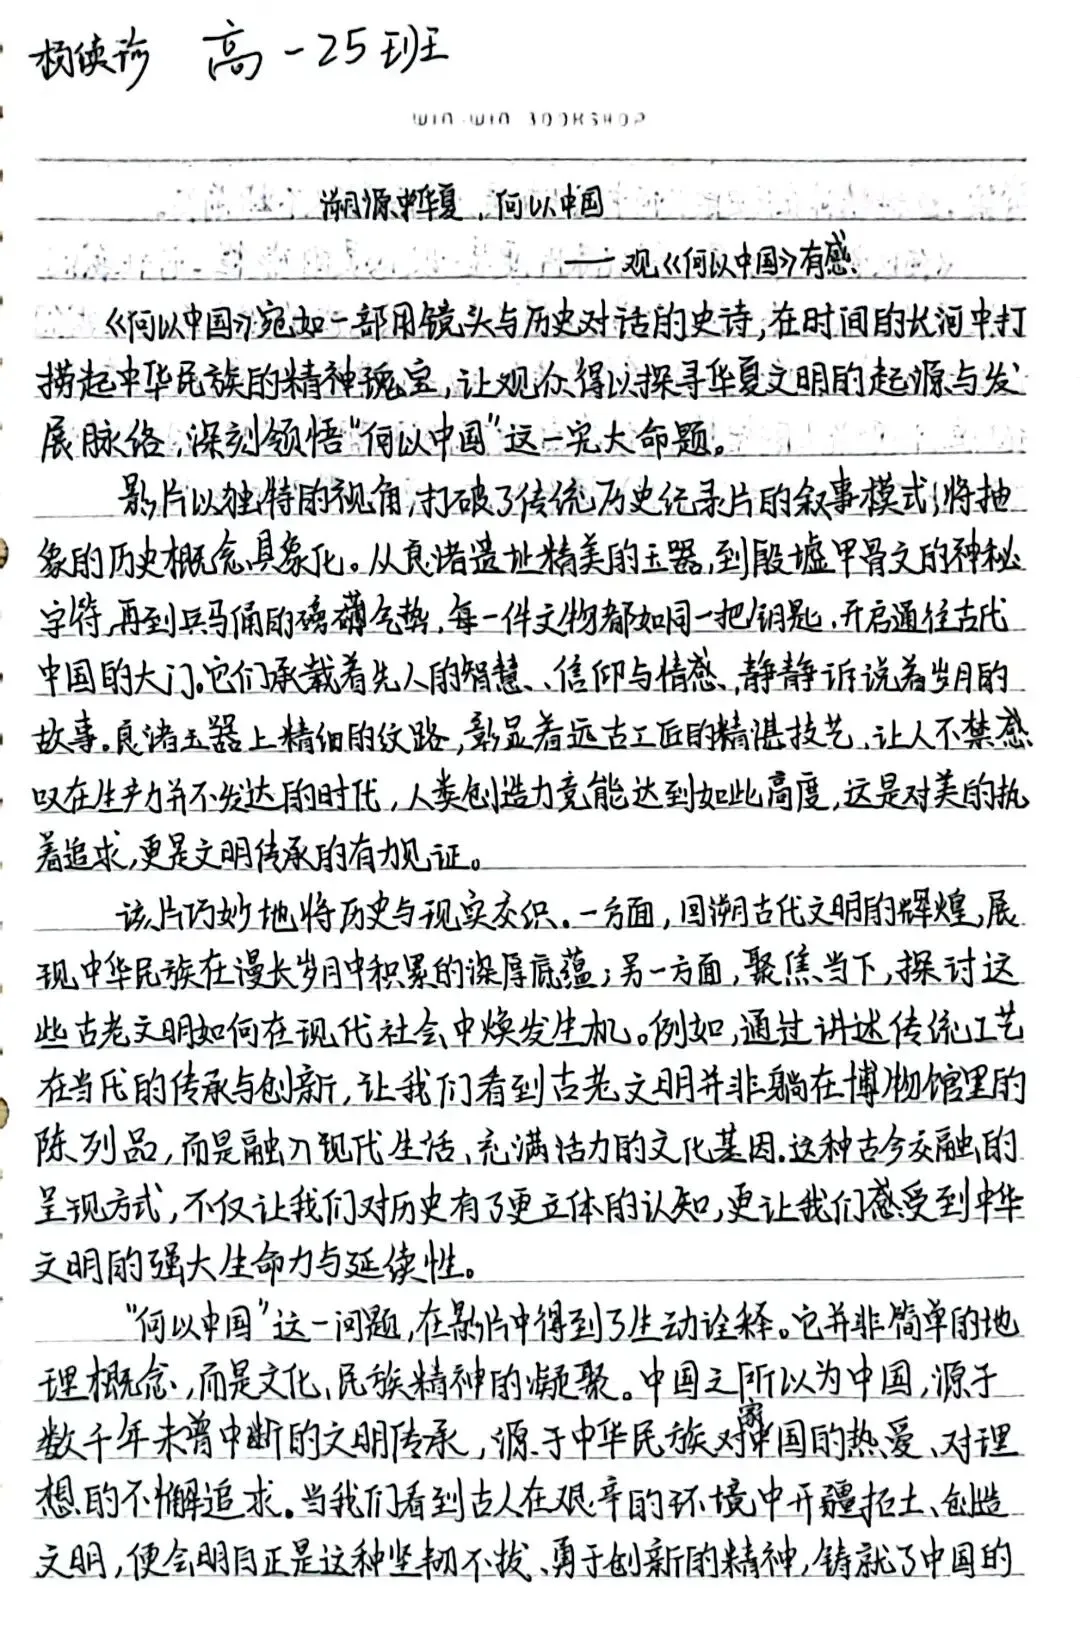 高一25班
WIN-WIN BOOKSHOP
溯源中华夏,何以中国
——观《何以中国》有感
《何以中国》宛如一部用镜头与历史对话的史诗,在时间的长河中打
捞起中华民族的精神瑰宝,让观众得以探寻华夏文明的起源与发
展脉络,深刻领悟“何以中国”这一宏大命题。
影片以独特的视角,打破了传统历史纪录片的叙事模式,将抽
象的历史概念具象化。从良渚遗址精美的玉器,到殷墟甲骨文的神秘
字符,再到兵马俑的磅礴气势,每一件文物都如同一把钥匙,开启通往古代
中国的大门。它们承载着先人的智慧、信仰与情感,静静诉说着岁月的
故事。良渚玉器上精细的纹路,彰显着远古工匠的精湛技艺,让人不禁感
叹在生产力并不发达的时代,人类创造力竟能达到如此高度,这是对美的执
着追求,更是文明传承的有力见证。
该片巧妙地将历史与现实交织。一方面,回溯古代文明的辉煌,展
现中华民族在漫长岁月中积累的深厚底蕴;另一方面,聚焦当下,探讨这
些古老文明如何在现代社会中焕发生机。例如,通过讲述传统工艺
在当代的传承与创新,让我们看到古老文明并非躺在博物馆里的
陈列品,而是融入现代生活、充满活力的文化基因。这种古今交融的
呈现方式,不仅让我们对历史有了更立体的认知,更让我们感受到中华
文明的强大生命力与延续性。
“何以中国”这一问题,在影片中得到了生动诠释。它并非简单的地
理概念,而是文化、民族精神的凝聚。中国之所以为中国,源于
数千年未曾中断的文明传承,源于中华民族对家国的热爱、对理
想的不懈追求。当我们看到古人在艰辛的环境中开疆拓土、创造
文明,便会明白正是这种坚韧不拔、勇于创新的精神,铸就了中国的